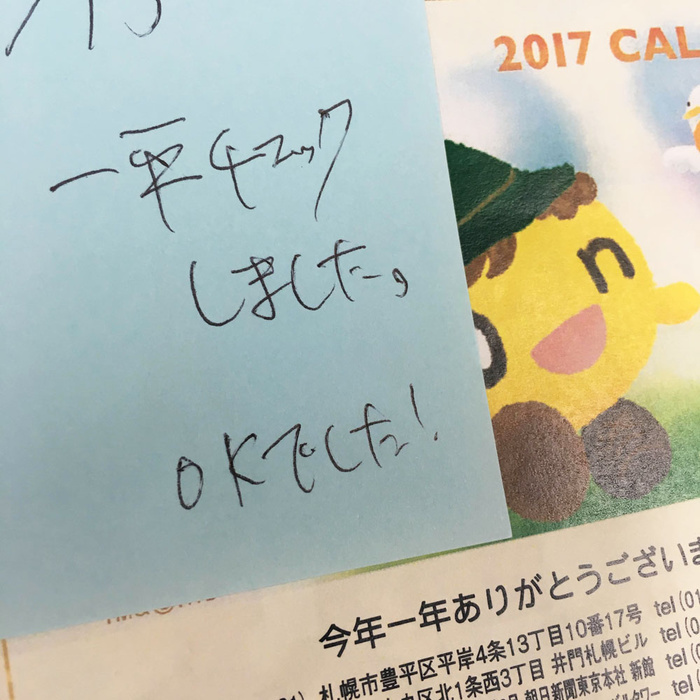 一平チェック
しました。
OKでした!
2017 CAL
今年一年ありがとうございま
札幌市豊平区平岸4条13丁目10番17号 tel(01
北1条西3丁目 井門札幌ビル tel(0
朝日新聞東京本社 新館 tel(